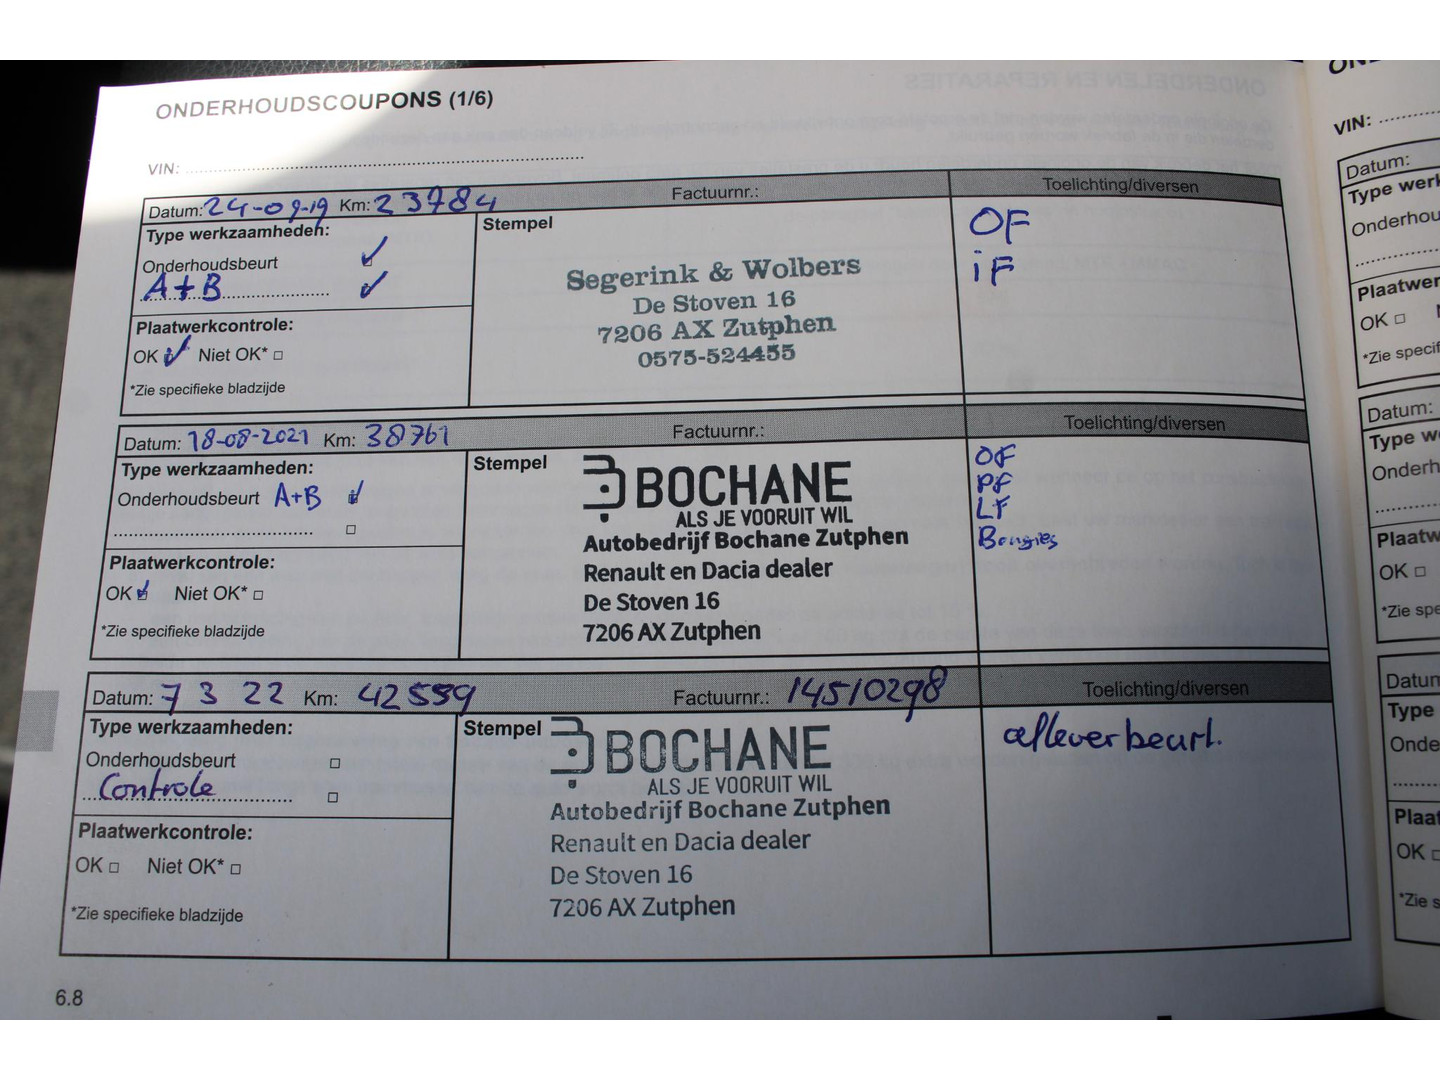 ONDERHOUDSCOUPONS (1/6)
VIN:
Datum: 24-09-19 Km: 23784 Factuurnr.: Toelichting/diversen
Type werkzaamheden:
Stempel
OF
Onderhoudsbeurt
iF
A+B
Segerink & Wolbers
De Stoven 16
7206 AX Zutphen
0575-524455
Plaatwerkcontrole:
OK Niet OK*
*Zie specifieke bladzijde
Datum: 18-08-2021 Km: 38761 Factuurnr.: Toelichting/diversen
Type werkzaamheden:
Stempel
Onderhoudsbeurt A+B
BOCHANE
ALS JE VOORUIT WIL
Autobedrijf Bochane Zutphen
Renault en Dacia dealer
De Stoven 16
7206 AX Zutphen
OF
PF
LF
Bougies
Plaatwerkcontrole:
OK Niet OK*
*Zie specifieke bladzijde
Datum: 7 3 22 Km: 42559 Factuurnr.: 14510298 Toelichting/diversen
Type werkzaamheden:
Stempel
Onderhoudsbeurt
Controle
BOCHANE
ALS JE VOORUIT WIL
Autobedrijf Bochane Zutphen
Renault en Dacia dealer
De Stoven 16
7206 AX Zutphen
afleverbeurt.
Plaatwerkcontrole:
OK Niet OK*
*Zie specifieke bladzijde
6.8
VIN:
Datum:
Type
OK
*Zie
Datum:
Type
OK
*Zie
Type
OK
*Zie